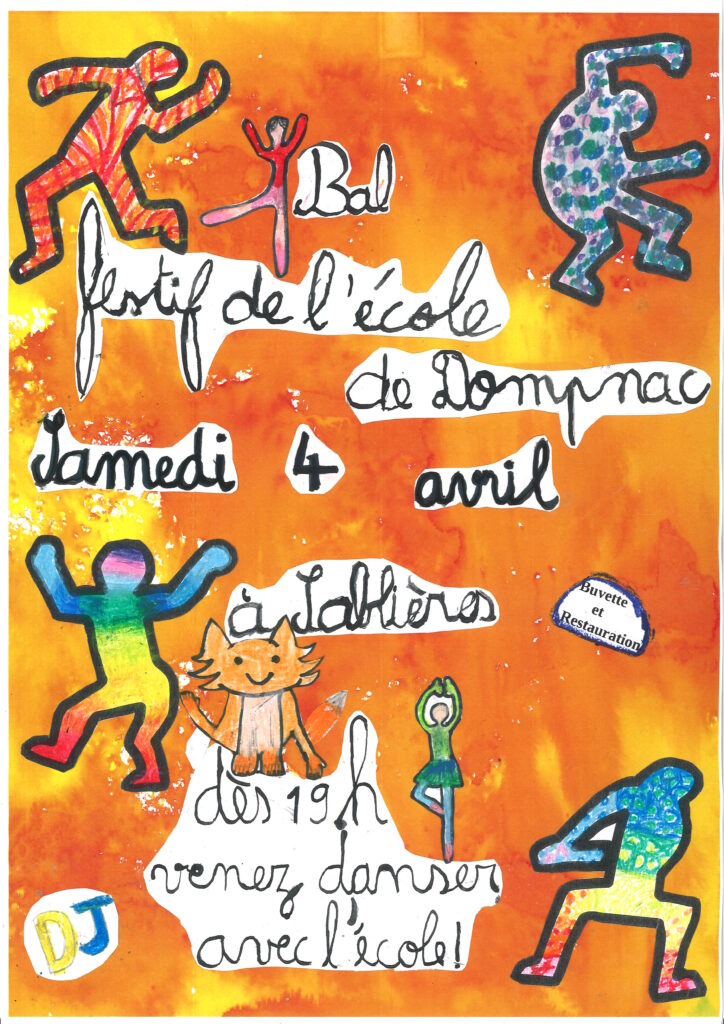 Bal
festif de l'école
de Dompnac
Samedi 4 avril
à Sablières
Buvette
et
Restauration
dès 19h
venez danser
avec l'école!
DJ